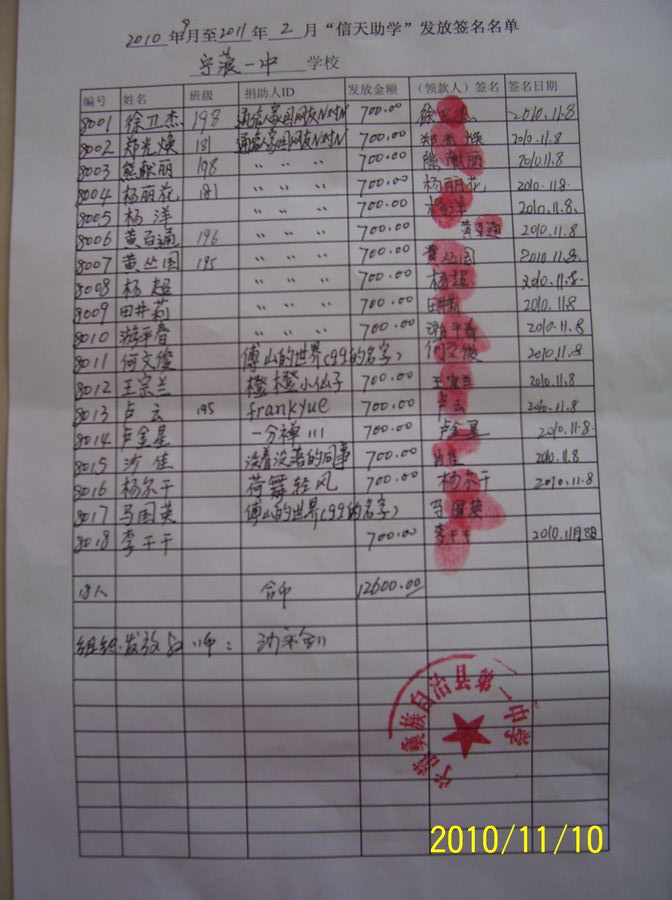 2010年9月至2011年2月“信天助学”发放签名名单
宁蒗一中学校
编号 姓名 班级 捐助人ID 发放金额 (领款人)签名 签名日期
8001 徐卫杰 198 通信人家园网友N对N 700.00 徐卫杰 2010.11.8
8002 郑光焕 181 通信人家园网友N对N 700.00 郑光焕 2010.11.8
8003 熊献丽 198 〃 〃 〃 700.00 熊献丽 2010.11.8
8004 杨丽花 181 〃 〃 〃 700.00 杨丽花 2010.11.8
8005 杨洋 〃 〃 〃 700.00 杨洋 2010.11.8
8006 黄百通 196 〃 〃 〃 700.00 黄百通 2010.11.8
8007 黄丛国 195 〃 〃 〃 700.00 黄丛国 2010.11.8
8008 杨超 〃 〃 〃 700.00 杨超 2010.11.8
8009 田井莉 〃 〃 〃 700.00 田井莉 2010.11.8
8010 游平春 〃 〃 〃 700.00 游平春 2010.11.8
8011 何文俊 傅山的世界(99的名字) 何文俊 2010.11.8
8012 王宗兰 橙橙小仙子 700.00 王宗兰 2010.11.8
8013 卢云 195 frankyue 700.00 卢云 2010.11.8
8014 卢金星 一分禅111 700.00 卢金星 2010.11.8
8015 沙佳 没着没落的同事 700.00 沙佳 2010.11.8
8016 杨尔干 荷舞轻风 700.00 杨尔干 2010.11.8
8017 马国英 傅山的世界(99的名字) 马国英
8018 李干干 700.00 李干干 2010.11月8日
18人 合计 12600.00
组织发放
宁蒗彝族自治县第一中学
2010/11/10